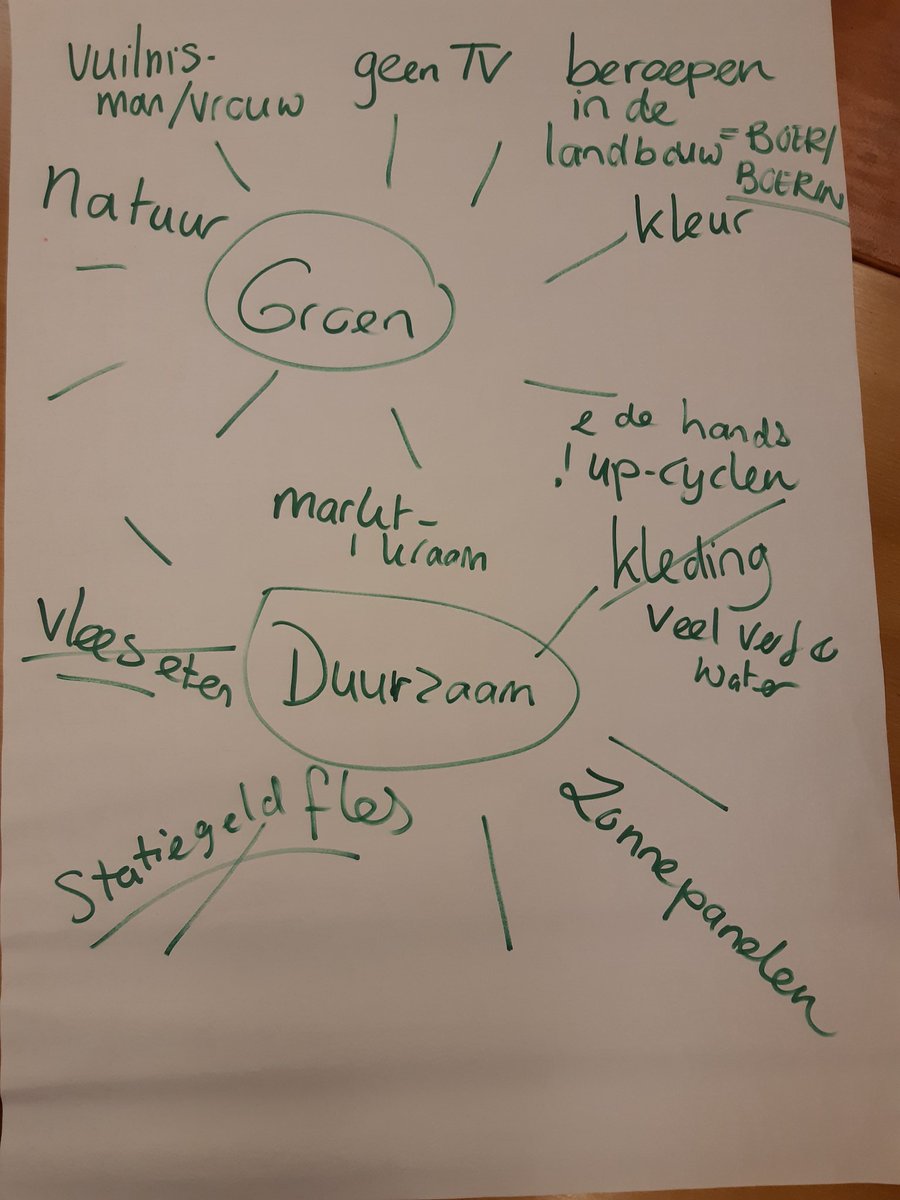 vuilnis-
man/vrouw
geen TV
beroepen
in de
landbouw = BOER/
BOERIN
Natuur
kleur
Groen
2e de hands
! up-cyclen
markt-
kraam
kleding
veel verf &
water
vlees eten
Duurzaam
Statiegeld fles
Zonnepanelen